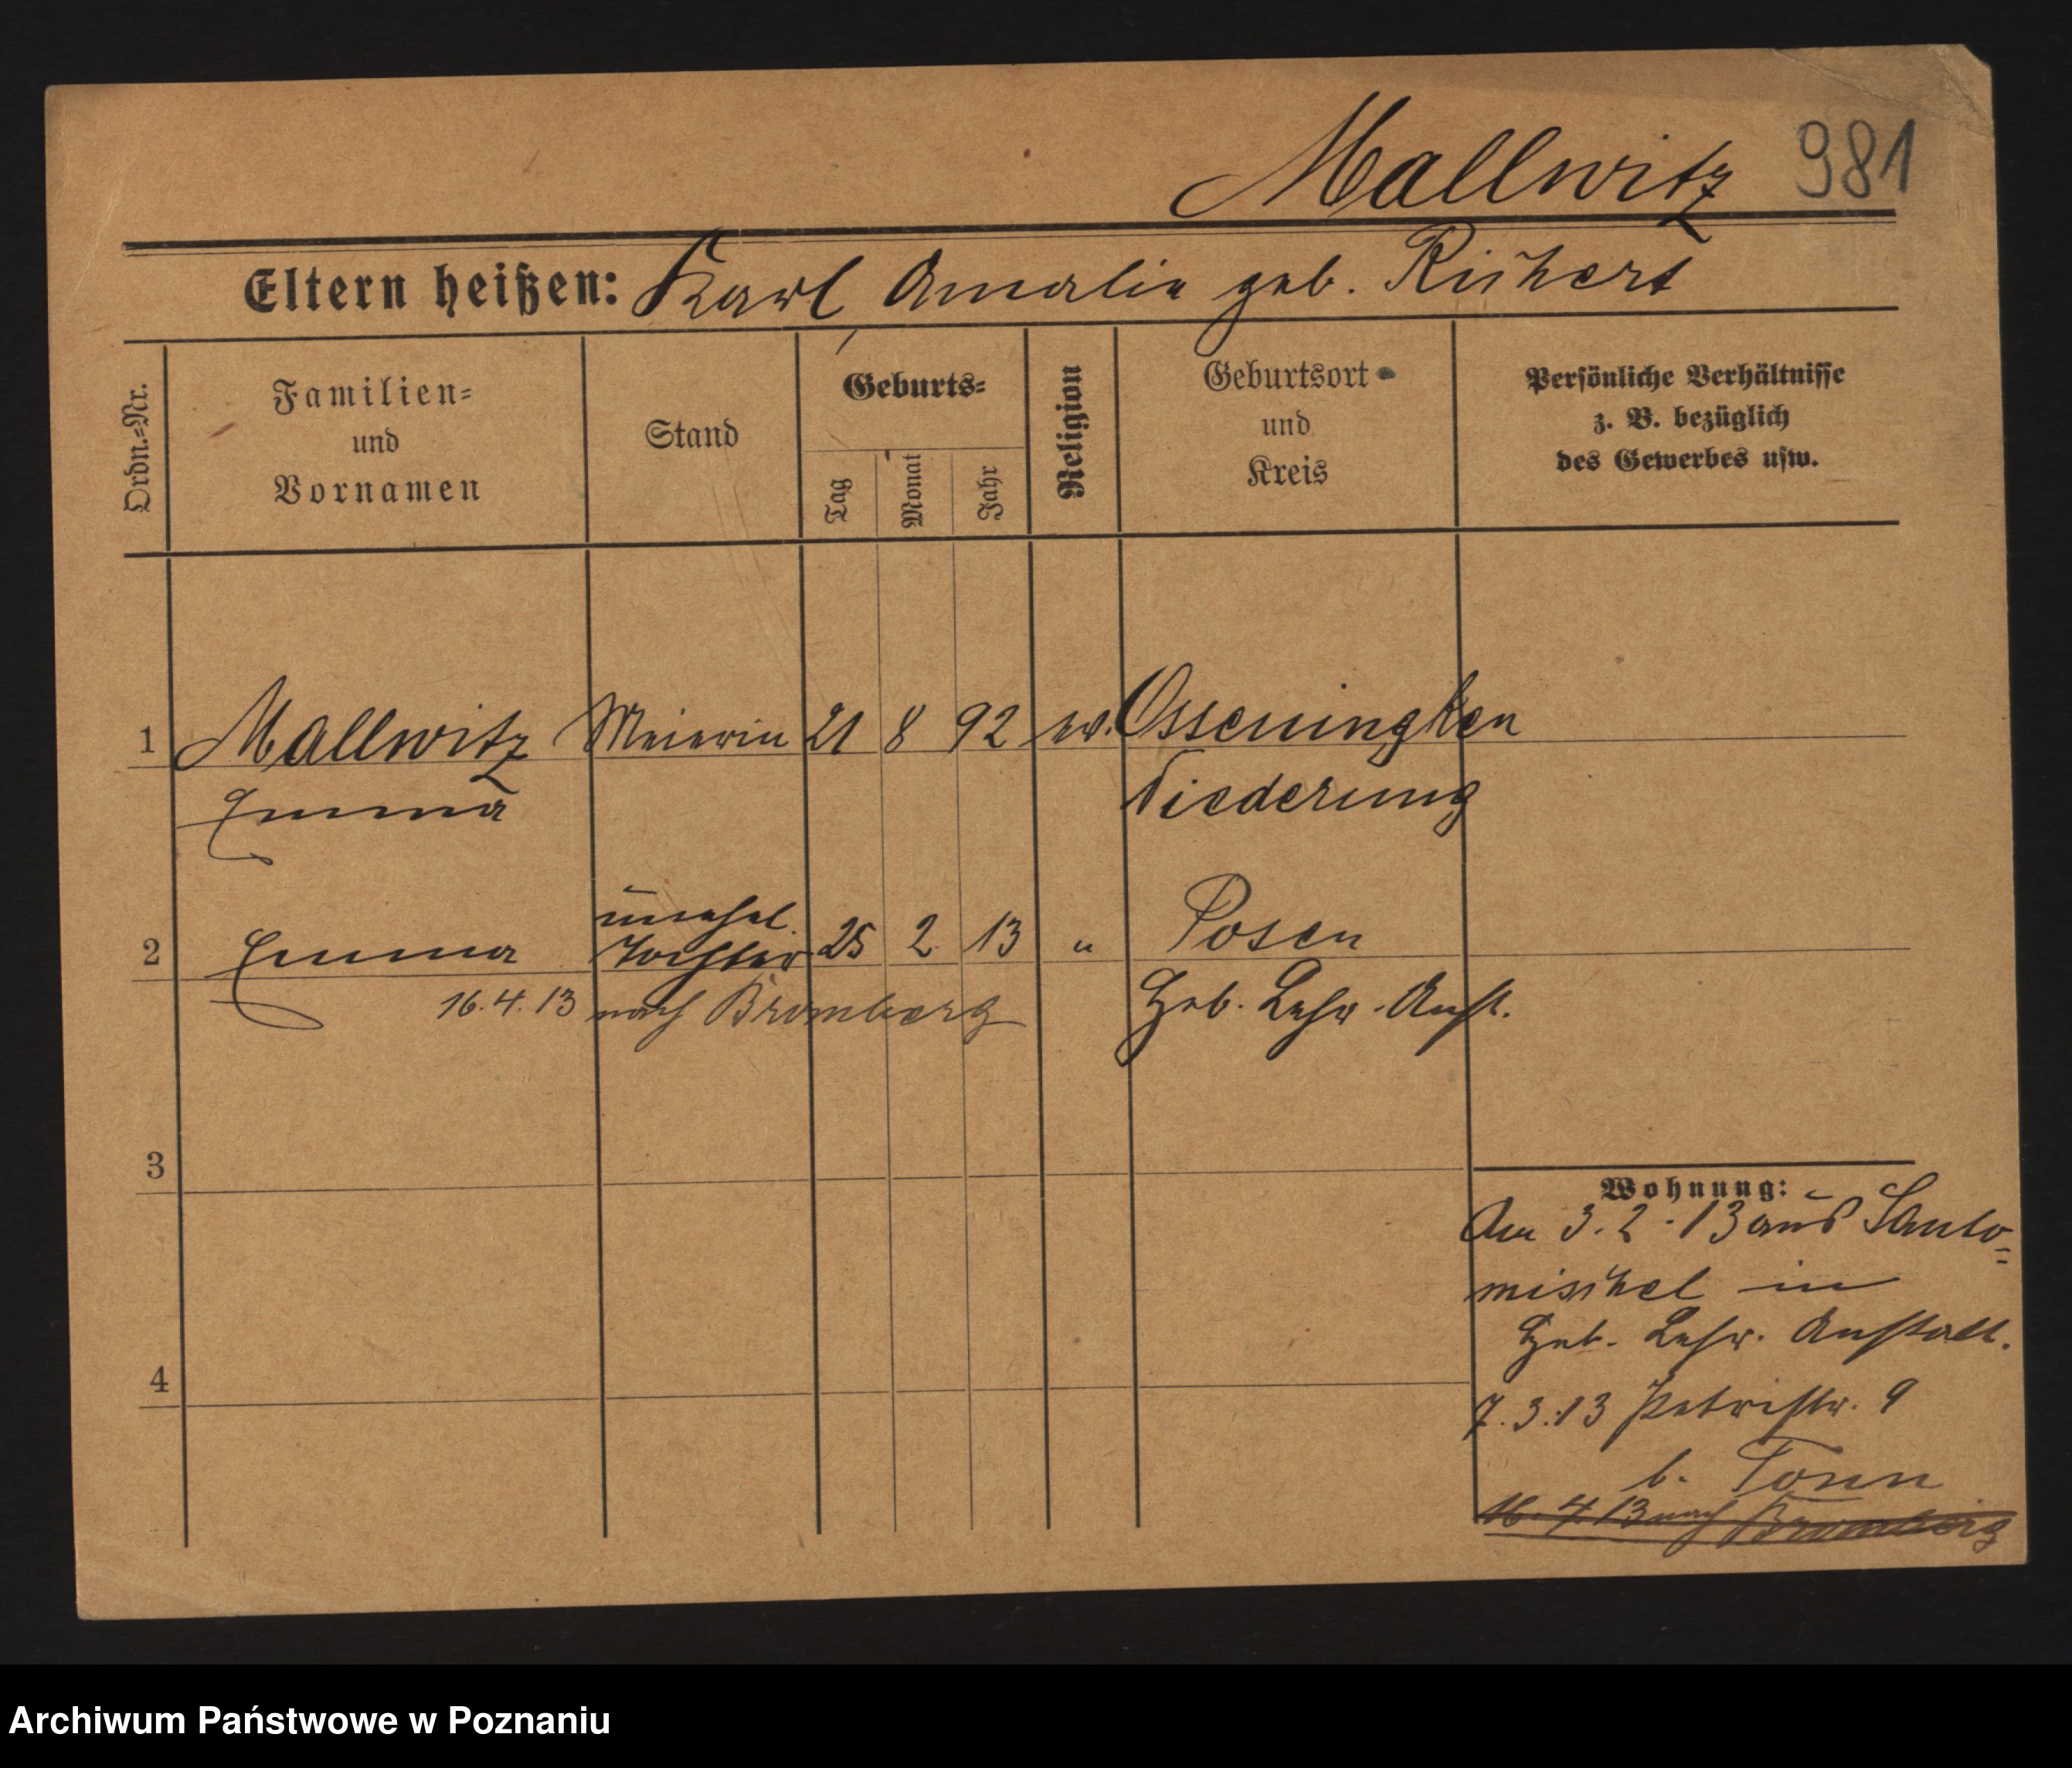 Mallwitz 981
Eltern heißen: Karl Amalie geb. Richert
Ordn.=Nr.
Familien=
und
Vornamen
Stand
Geburts=
Tag
Monat
Jahr
Religion
Geburtsort
und
Kreis
Persönliche Verhältnisse
z. B. bezüglich
des Gewerbes usw.
1 Mallwitz Meierin 21 8 92 ev. Osseningken
Emma Niederung
unehel.
2 Emma Tochter 25 2 13 " Posen
16.4.13 nach Bromberg Heb. Lehr-Anst.
3
4
Wohnung:
Am 3.2.13 aus Santo=
mischel in
Heb. Lehr. Anstalt.
7.3.13 Petristr. 9
b. Tonn
16.4.13 nach Bromberg
Archiwum Państwowe w Poznaniu